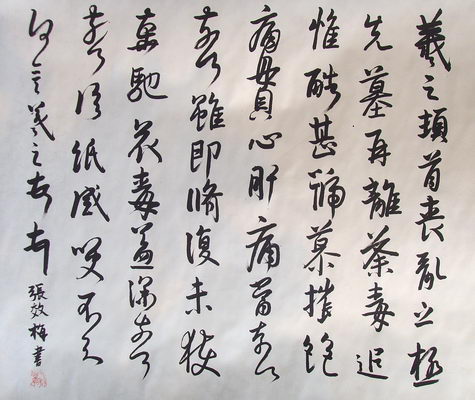 羲之頓首喪亂之極
先墓再離荼毒追
惟酷甚號慕摧絕
痛貫心肝痛當奈何
奈何雖即脩復未獲
奔馳哀毒益深奈何
奈何臨紙感哽不知
何言羲之頓首頓首
張效梅書